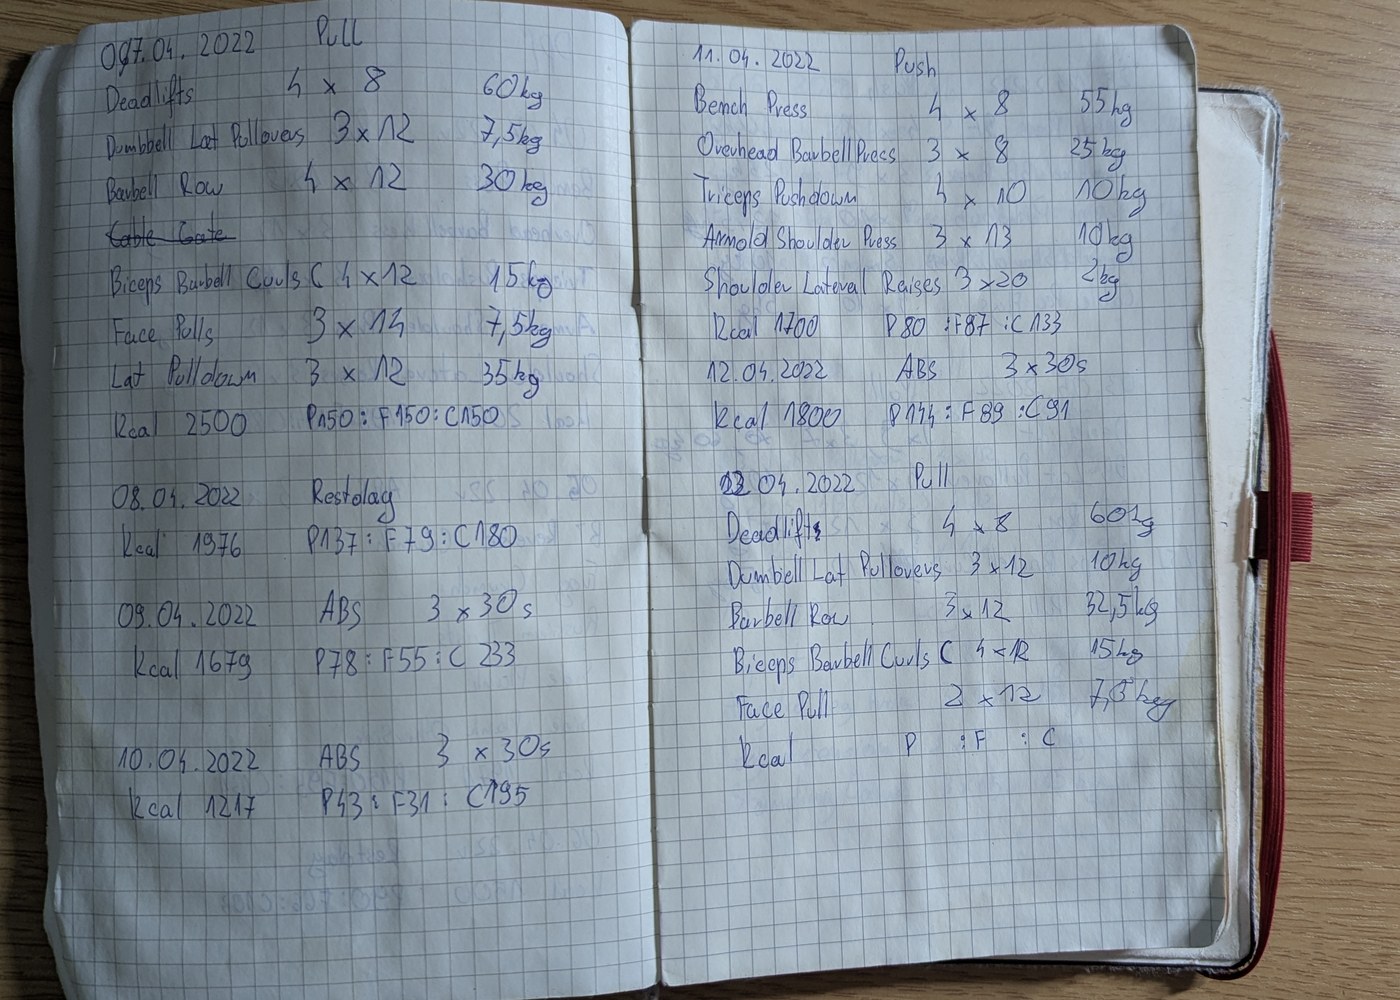 07.04.2022 Pull
Deadlifts 4 x 8 60kg
Dumbbell Lat Pullovers 3x12 7,5kg
Barbell Row 4 x 12 30kg
Cable Gate
Biceps Barbell Curls C 4x12 15kg
Face Pulls 3 x 14 7,5kg
Lat Pulldown 3 x 12 35kg
Kcal 2500 P150 : F150 : C150
08.04.2022 Restday
Kcal 1976 P137 : F79 : C180
09.04.2022 ABS 3 x 30s
Kcal 1679 P78 : F55 : C 233
10.04.2022 ABS 3 x 30s
Kcal 1217 P43 : F31 : C195
11.04.2022 Push
Bench Press 4 x 8 55kg
Overhead Barbell Press 3 x 8 25kg
Triceps Pushdown 4 x 10 10kg
Arnold Shoulder Press 3 x 13 10kg
Shoulder Lateral Raises 3 x 20 2kg
Kcal 1700 P80 : F87 : C133
12.04.2022 ABS 3 x 30s
Kcal 1800 P144 : F89 : C91
04.2022 Pull
Deadlifts 4 x 8 60kg
Dumbell Lat Pullovers 3 x 12 10kg
Barbell Row 3 x 12 32,5kg
Biceps Barbell Curls C 4 x 12 15kg
Face Pull 2 x 12 7,5kg
Kcal P : F : C